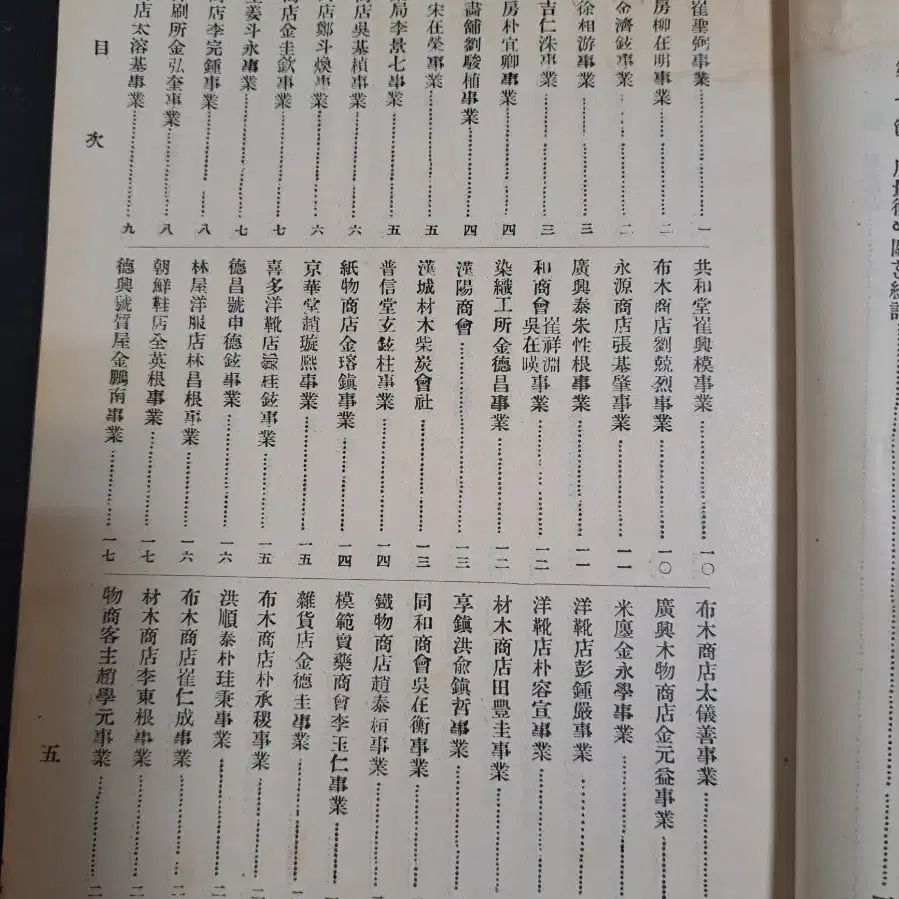 崔聖弼事業……一
房柳在明事業……二
金濟鉉事業……二
徐相游事業……三
吉仁洙事業……三
房朴宜卿事業……四
舖劉駿植事業……四
宋在榮事業……五
局李景七事業……五
商店吳基楨事業……六
店鄭斗煥事業……六
商店金圭欽事業……七
姜斗永事業……七
商店李完鍾事業……八
刷所金弘奎事業……八
店太溶基事業……九
共和堂崔興模事業……一〇
布木商店劉兢烈事業……一〇
永源商店張基肇事業……一一
廣興泰朱性根事業……一一
和商會崔祥淵吳在暎事業……一二
染織工所金德昌事業……一二
漢陽商會……一三
漢城材木柴炭會社……一三
普信堂玄鉉柱事業……一四
紙物商店金瑢鎭事業……一四
京華堂趙璇熙事業……一五
喜多洋靴店桂鉉事業……一五
德昌號申德鉉事業……一六
林屋洋服店林昌根事業……一六
朝鮮鞋店全英根事業……一七
德興號質屋金鵬南事業……一七
布木商店太儀善事業……
廣興木物商店金元益事業……
米廛金永學事業……
洋靴店彭鍾嚴事業……
洋靴店朴容宣事業……
材木商店田豐圭事業……
享鎭洪兪鎭哲事業……
同和商會吳在衡事業……
鐵物商店趙泰桓事業……
模範賣藥商會李玉仁事業……
雜貨店金德圭事業……
布木商店朴承稷事業……
洪順泰朴珪秉事業……
布木商店崔仁成事業……
材木商店李東根事業……
物商客主趙學元事業……
目次
五